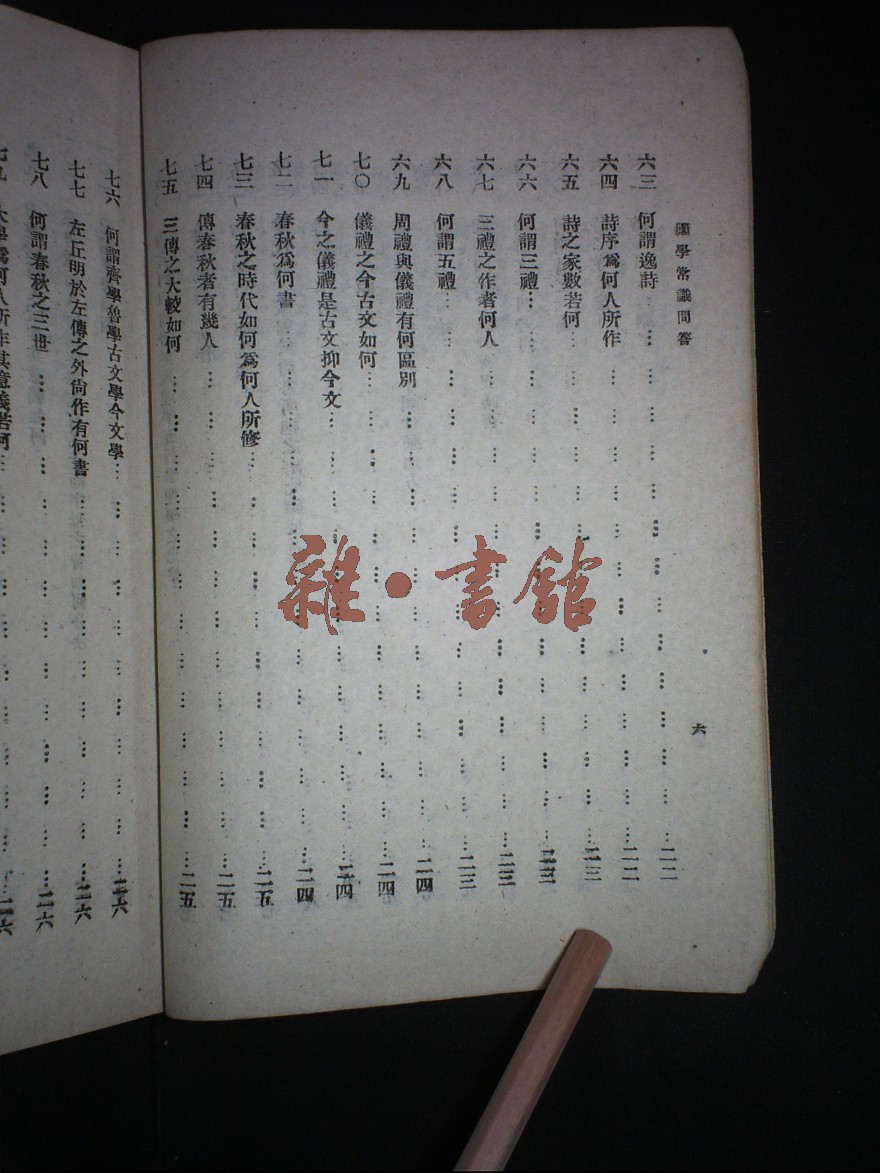 國學常識問答
六三 何謂逸詩 二二
六四 詩序為何人所作 二二
六五 詩之家數若何 二三
六六 何謂三禮 二三
六七 三禮之作者何人 二三
六八 何謂五禮 二三
六九 周禮與儀禮有何區別 二四
七〇 儀禮之今古文如何 二四
七一 今之儀禮是古文抑今文 二四
七二 春秋爲何書 二四
七三 春秋之時代如何爲何人所修 二五
七四 傳春秋者有幾人 二五
七五 三傳之大較如何 二五
六
七六 何謂齊學魯學古文學今文學 二六
七七 左丘明於左傳之外尙作有何書 二六
七八 何謂春秋之三世 二六
七九 大學爲何人所作其意義若何 二六
雜·書館